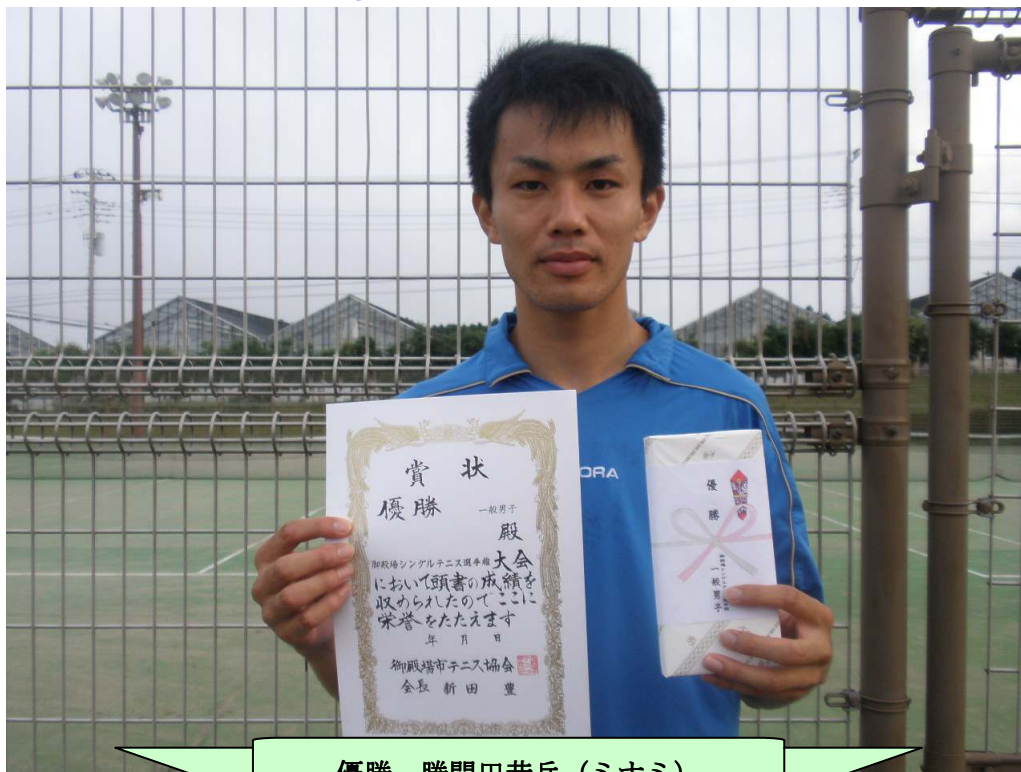 賞状
優勝
一般男子
殿
御殿場シングルテニス選手権大会
において頭書の成績を
収められたのでここに
栄誉をたたえます
年 月 日
御殿場市テニス協会
会長 新田 豊
ORA
優勝
一般男子